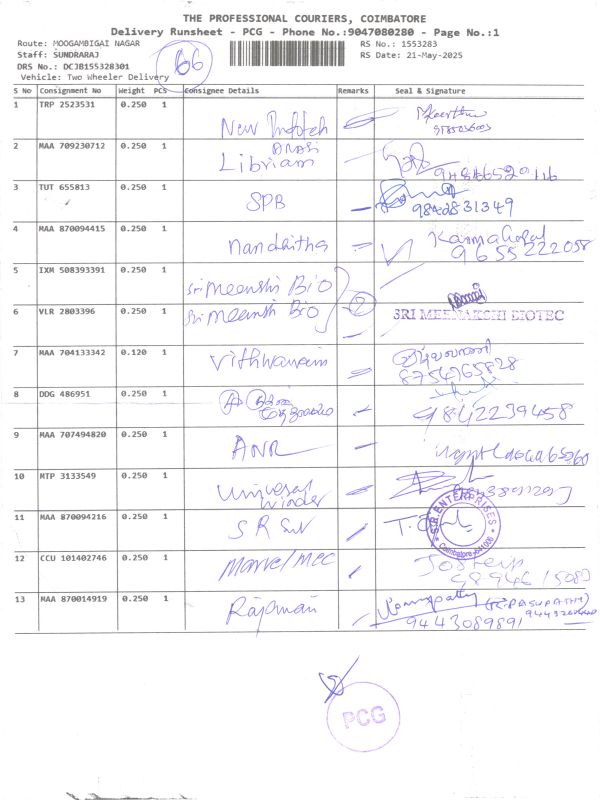 THE PROFESSIONAL COURIERS, COIMBATORE
Delivery Runsheet - PCG - Phone No.:9047080280 - Page No.:1
Route: MOOGAMBIGAI NAGAR
Staff: SUNDRARAJ
DRS No.: DCJB155328301
Vehicle: Two Wheeler Delivery
66
RS No.: 1553283
RS Date: 21-May-2025
S No Consignment No Weight PCS Consignee Details Remarks Seal & Signature
1 TRP 2523531 0.250 1 New Infotch
2 MAA 709230712 0.250 1 Librium
3 TUT 655813 0.250 1 SPB
4 MAA 870094415 0.250 1 nandhitha 9655222058
5 IXM 508393391 0.250 1 Sri meenshi Bio
6 VLR 2803396 0.250 1 Sri meenshi Bio 2 SRI MEENAKSHI BIOTEC
7 MAA 704133342 0.120 1 Vithwanam 8754765828
8 DDG 486951 0.250 1 9842239458
9 MAA 707494820 0.250 1 ANR
10 MTP 3133549 0.250 1 Universal winder
11 MAA 870094216 0.250 1 S R S.R. ENTERPRISES Coimbatore
12 CCU 101402746 0.250 1 Marvel mec
13 MAA 870014919 0.250 1 Rajamani (R.PASUPATHY)
9443089891
PCG